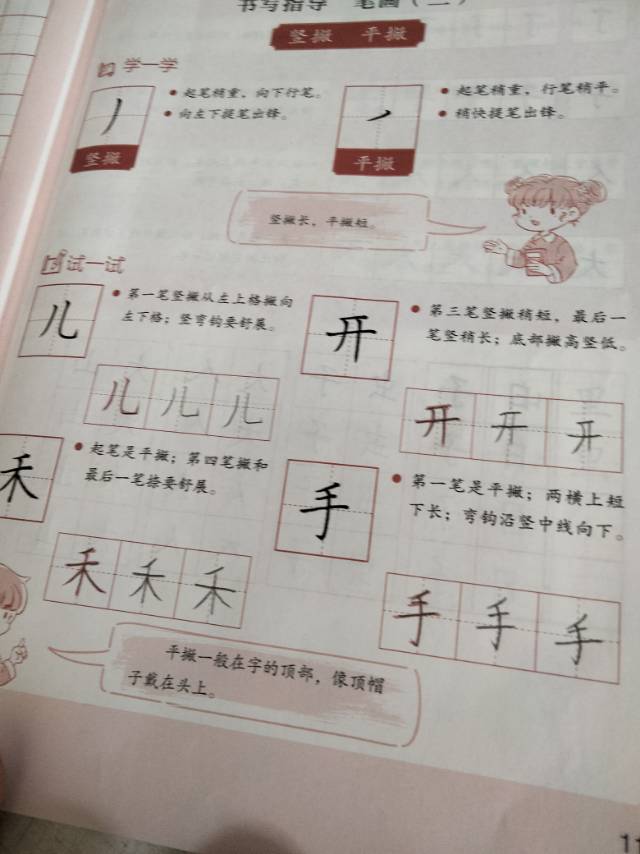 书写指导 笔画（二）
竖撇 平撇
学一学
起笔稍重，向下行笔。
向左下提笔出锋。
竖撇
起笔稍重，行笔稍平。
稍快提笔出锋。
平撇
竖撇长，平撇短。
试一试
儿
第一笔竖撇从左上格撇向
左下格；竖弯钩要舒展。
儿 儿 儿
开
第三笔竖撇稍短，最后一
笔竖稍长；底部撇高竖低。
开 开 开
禾
起笔是平撇；第四笔撇和
最后一笔捺要舒展。
禾 禾 禾
手
第一笔是平撇；两横上短
下长；弯钩沿竖中线向下。
手 手 手
平撇一般在字的顶部，像顶帽
子戴在头上。